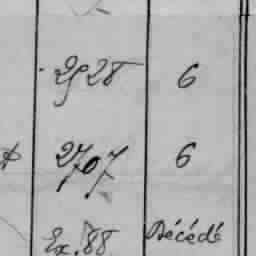 2528 6
2707 6
Ex. 88 Décédé